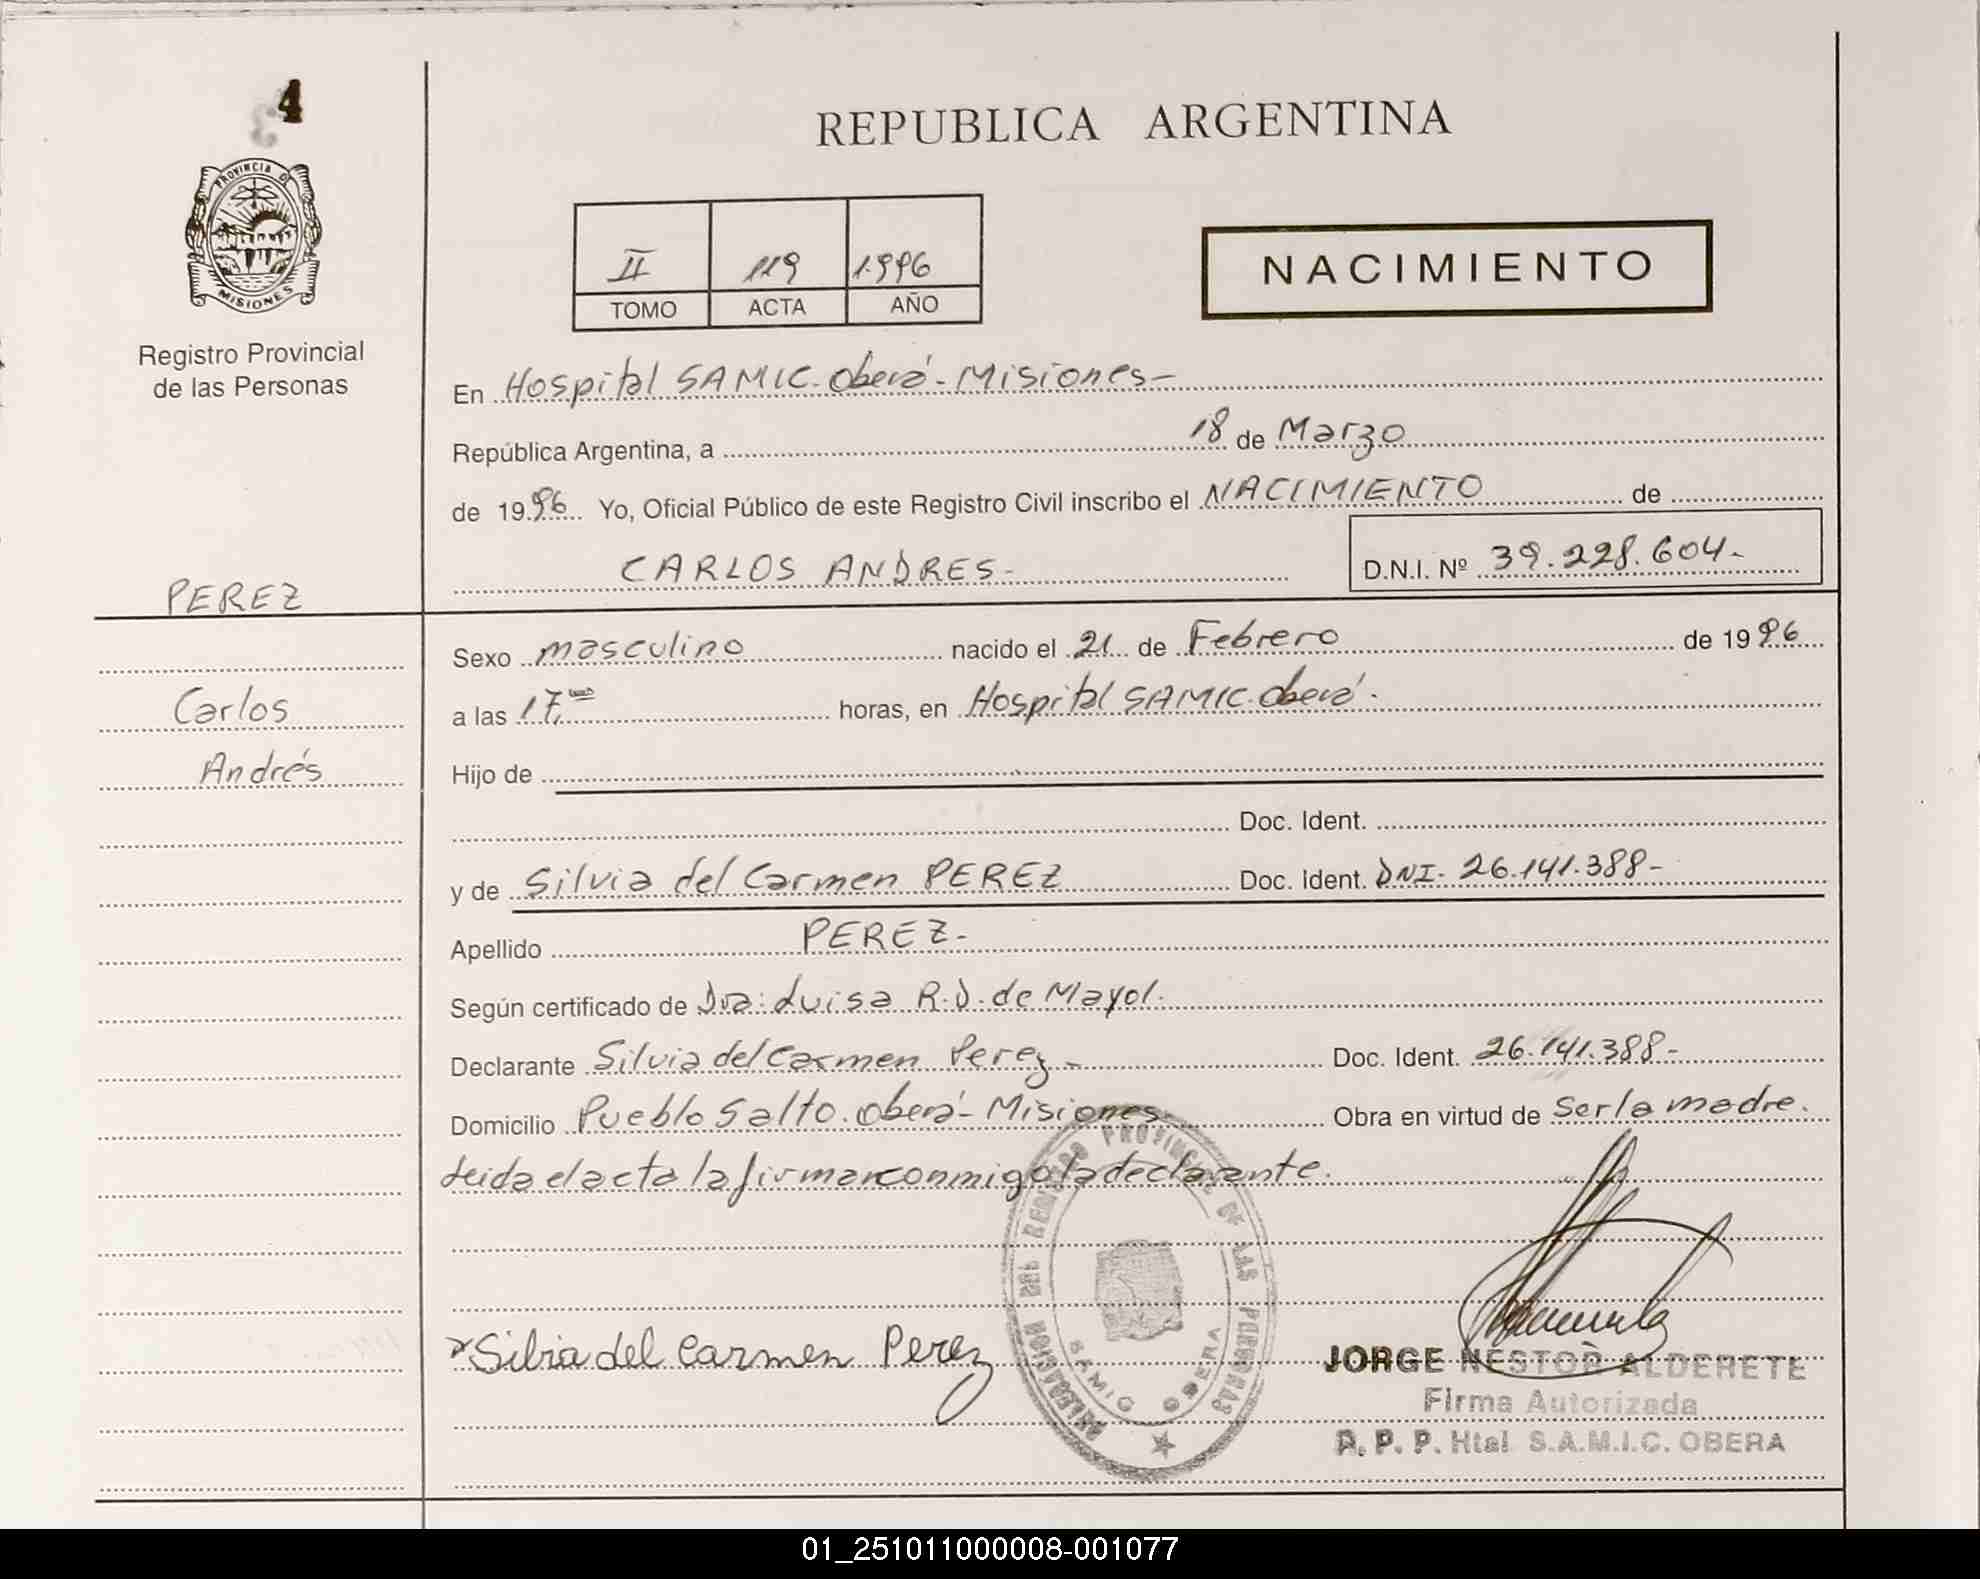 4
REPUBLICA ARGENTINA
PROVINCIA D
MISIONES
Registro Provincial
de las Personas
II 119 1.996
TOMO ACTA AÑO
NACIMIENTO
En Hospital SAMIC. Oberá - Misiones -
República Argentina, a 18 de Marzo
de 1996 Yo, Oficial Público de este Registro Civil inscribo el NACIMIENTO de
CARLOS ANDRES - D.N.I. Nº 39.228.604.-
PEREZ
Carlos
Andrés
Sexo masculino nacido el 21 de Febrero de 1996
a las 17 horas, en Hospital SAMIC. Oberá.
Hijo de
Doc. Ident.
y de Silvia del Carmen PEREZ Doc. Ident. DNI. 26.141.388-
Apellido PEREZ-
Según certificado de Dra: Luisa R.D. de Mayol.
Declarante Silvia del Carmen Perez - Doc. Ident. 26.141.388-
Domicilio Pueblo Salto. Oberá - Misiones. Obra en virtud de Ser la madre.
Leida el acta la firman conmigo la declarante.
DELEGACION DEL REGISTRO PROVINCIAL DE LAS PERSONAS
SAMIC OBERA
Silvia del Carmen Perez
JORGE NÉSTOR ALDERETE
Firma Autorizada
R. P. P. Htal S.A.M.I.C. OBERA
01_251011000008-001077